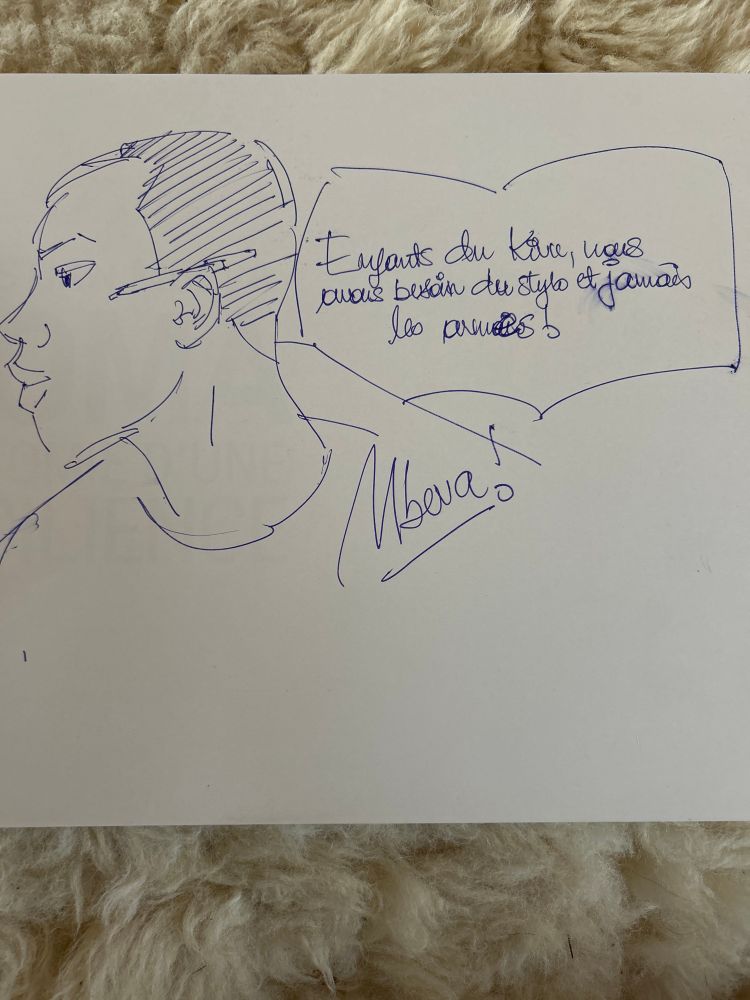 Enfants du Kivu, nous
avons besoin du stylo et jamais
les armes!
Mbeva!